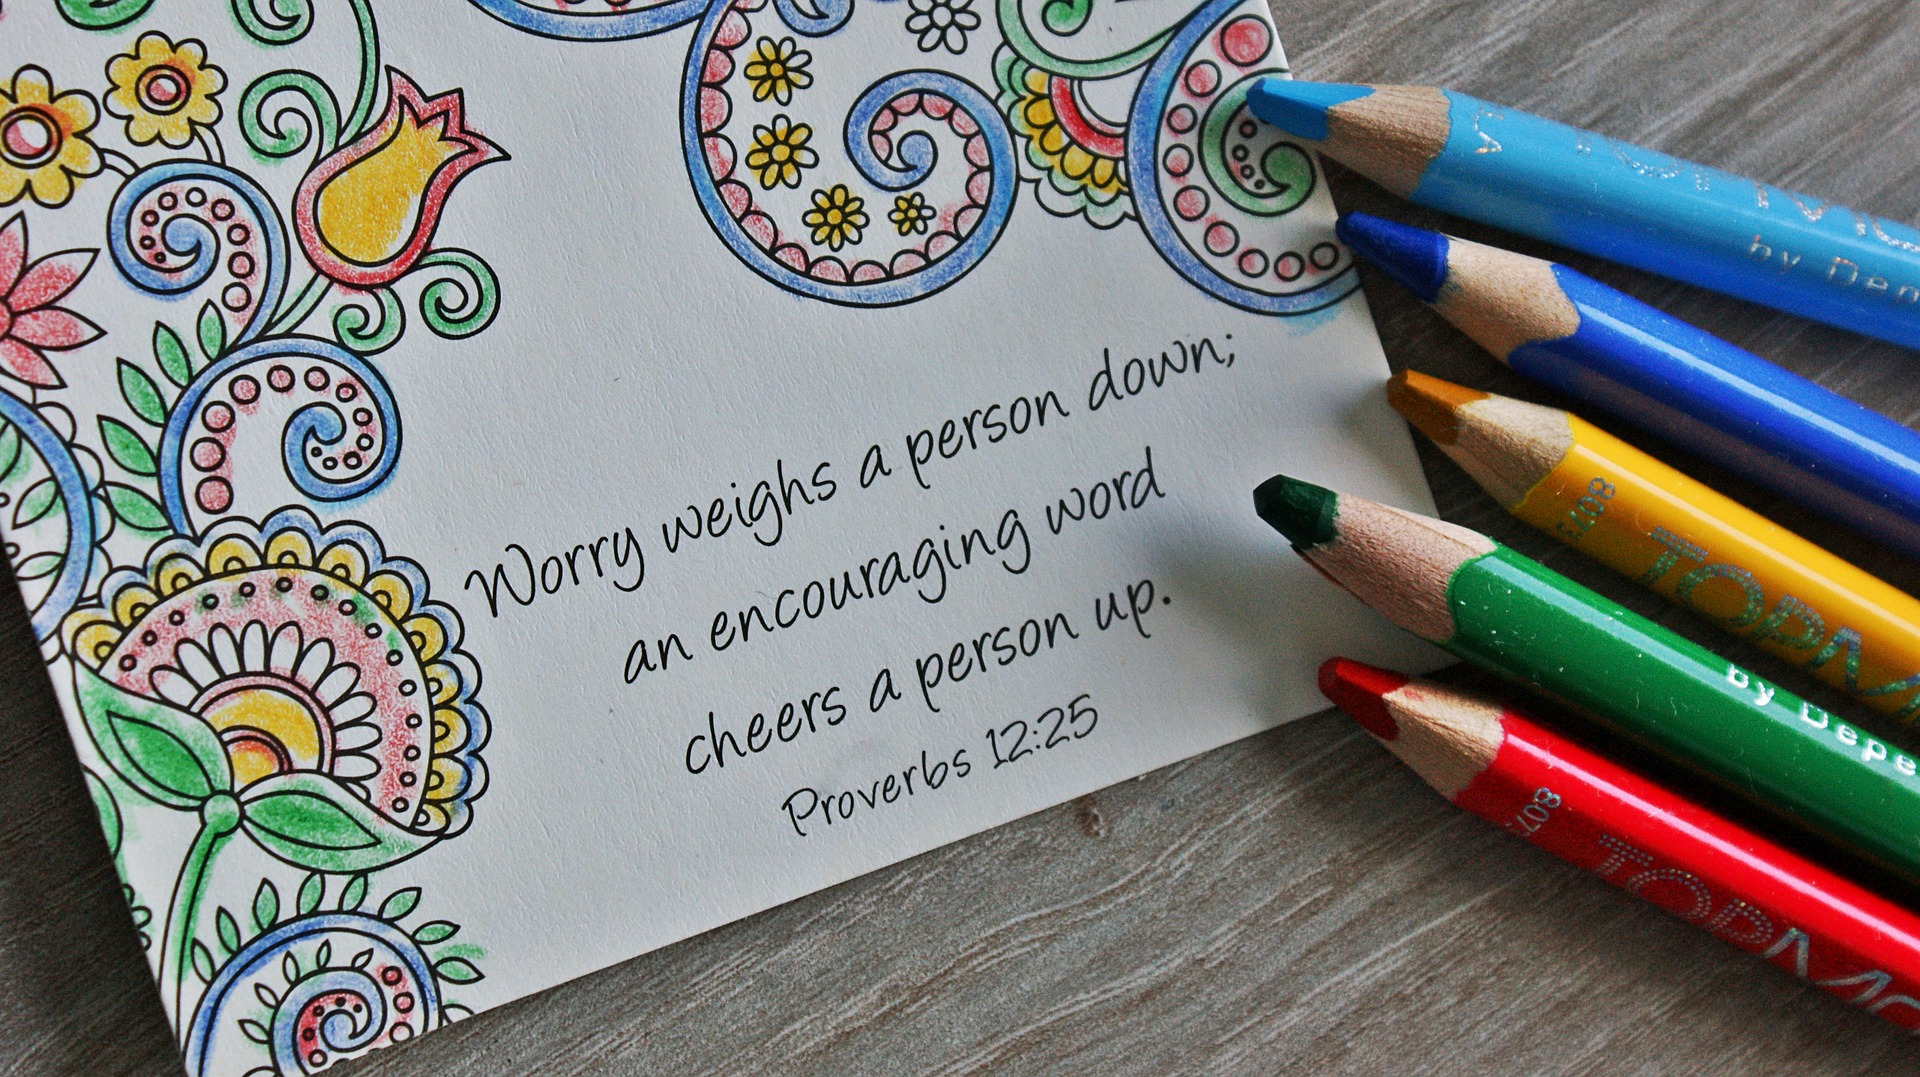 Worry weighs a person down;
an encouraging word
cheers a person up.
Proverbs 12:25
by
8077
TOPM
by Depe
TOPMO